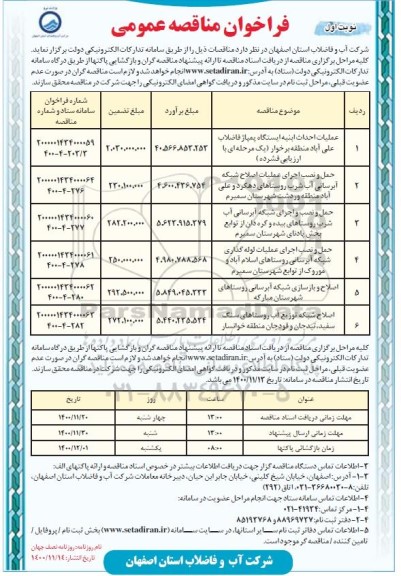 فراخوان مناقصه عمومی
نوبت اول
شرکت آب و فاضلاب استان اصفهان در نظر دارد مناقصات ذیل را از طریق سامانه تدارکات الکترونیکی دولت برگزار نماید.
کلیه مراحل برگزاری مناقصه از دریافت اسناد مناقصه تا ارائه پیشنهاد مناقصه گران و بازگشایی پاکتها از طریق درگاه سامانه
تدارکات الکترونیکی دولت (ستاد) به آدرس: www.setadiran.ir انجام خواهد شد و لازم است مناقصه گران در صورت عدم
عضویت قبلی، مراحل ثبت نام در سایت مذکور و دریافت گواهی امضای الکترونیکی را جهت شرکت در مناقصه محقق سازند.
ردیف موضوع مناقصه مبلغ برآورد مبلغ تضمین شماره فراخوان سامانه ستاد و شماره مناقصه
۱ عملیات احداث ابنیه ایستگاه پمپاژ فاضلاب علی آباد منطقه برخوار (یک مرحله‌ای با ارزیابی فشرده) ۴۰.۵۶۶.۸۵۳.۷۵۳ ۲.۰۳۰.۰۰۰.۰۰۰ ۲۰۰۰۰۰۱۴۳۴۰۰۰۰۵۹ ۴۰۰-۴-۲۰۳/۳
۲ حمل و نصب اجرای عملیات اصلاح شبکه آبرسانی آب شرب روستاهای دهکرد و علی آباد منطقه وردشت شهرستان سمیرم ۴.۶۰۰.۴۳۶.۷۵۴ ۲۳۰.۱۰۰.۰۰۰ ۲۰۰۰۰۰۱۴۳۴۰۰۰۰۶۴ ۴۰۰-۴-۲۷۶
۳ حمل و نصب و اجرای شبکه آبرسانی آب شرب روستاهای بیده و کره دان از توابع بخش پادنای شهرستان سمیرم ۵.۶۲۳.۹۱۵.۳۷۹ ۲۸۲.۲۰۰.۰۰۰ ۲۰۰۰۰۰۱۴۳۴۰۰۰۰۶۰ ۴۰۰-۴-۲۷۷
۴ حمل و نصب اجرای عملیات لوله گذاری شبکه آبرسانی روستاهای اسلام آباد و موروک از توابع شهرستان سمیرم ۴.۹۸۰.۷۸۸.۵۶۸ ۲۵۰.۰۰۰.۰۰۰ ۲۰۰۰۰۰۱۴۳۴۰۰۰۰۶۱ ۴۰۰-۴-۲۷۸
۵ اصلاح و بازسازی شبکه آبرسانی روستاهای شهرستان مبارکه ۵.۸۴۹.۰۴۵.۳۳۳ ۲۹۲.۵۰۰.۰۰۰ ۲۰۰۰۰۰۱۴۳۴۰۰۰۰۶۲ ۴۰۰-۴-۲۸۰
۶ اصلاح شبکه توزیع آب روستاهای سنگ سفید، تیدجان و قودجان منطقه خوانسار ۵.۴۴۰.۲۳۵.۵۳۴ ۲۷۲.۱۰۰.۰۰۰ ۲۰۰۰۰۰۱۴۳۴۰۰۰۰۶۳ ۴۰۰-۴-۲۸۲
کلیه مراحل برگزاری مناقصه از دریافت اسناد مناقصه تا ارائه پیشنهاد مناقصه گران و بازگشایی پاکتها از طریق درگاه سامانه
تدارکات الکترونیکی دولت (ستاد) به آدرس: www.setadiran.ir انجام خواهد شد و لازم است مناقصه گران در صورت عدم
عضویت قبلی، مراحل ثبت نام در سایت مذکور و دریافت گواهی امضای الکترونیکی را جهت شرکت در مناقصه محقق سازند.
تاریخ انتشار مناقصه در سامانه: تاریخ ۱۴۰۰/۱۱/۱۳ می باشد.
عنوان ساعت روز تاریخ
مهلت زمانی دریافت اسناد مناقصه ۱۳:۰۰ چهارشنبه ۱۴۰۰/۱۱/۲۰
مهلت زمانی ارسال پیشنهاد ۱۳:۰۰ شنبه ۱۴۰۰/۱۱/۳۰
زمان بازگشایی پاکتها ۰۸:۰۰ یکشنبه ۱۴۰۰/۱۲/۰۱
۳-اطلاعات تماس دستگاه مناقصه گزار جهت دریافت اطلاعات بیشتر در خصوص اسناد مناقصه و ارائه پاکتهای الف:
۳-۱-آدرس: اصفهان، خیابان شیخ کلینی، خیابان جابر ابن حیان، دبیرخانه معاملات شرکت آب و فاضلاب استان اصفهان،
تلفن: ۸-۳۶۶۸۰۰۳۰-۰۳۱ (داخلی ۴۹۲)
۴-اطلاعات تماس سامانه ستاد جهت انجام مراحل عضویت در سامانه:
۴-۱- مرکز تماس: ۴۱۹۳۴-۰۲۱
۴-۲- دفتر ثبت نام: ۸۸۹۶۹۷۳۷ و ۸۵۱۹۳۷۶۸
۵-اطلاعات تماس دفاتر ثبت نام سایر استانها، در سایت سامانه (www.setadiran.ir) بخش ثبت نام / پروفایل /
تامین کننده / مناقصه گر موجود است.
نام روزنامه: روزنامه نصف جهان
تاریخ انتشار: ۱۴۰۰/۱۱/۱۴
شرکت آب و فاضلاب استان اصفهان